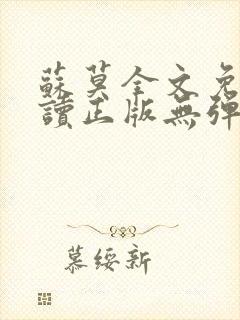 蘇莫全文免
讀正版無彈
慕綏新